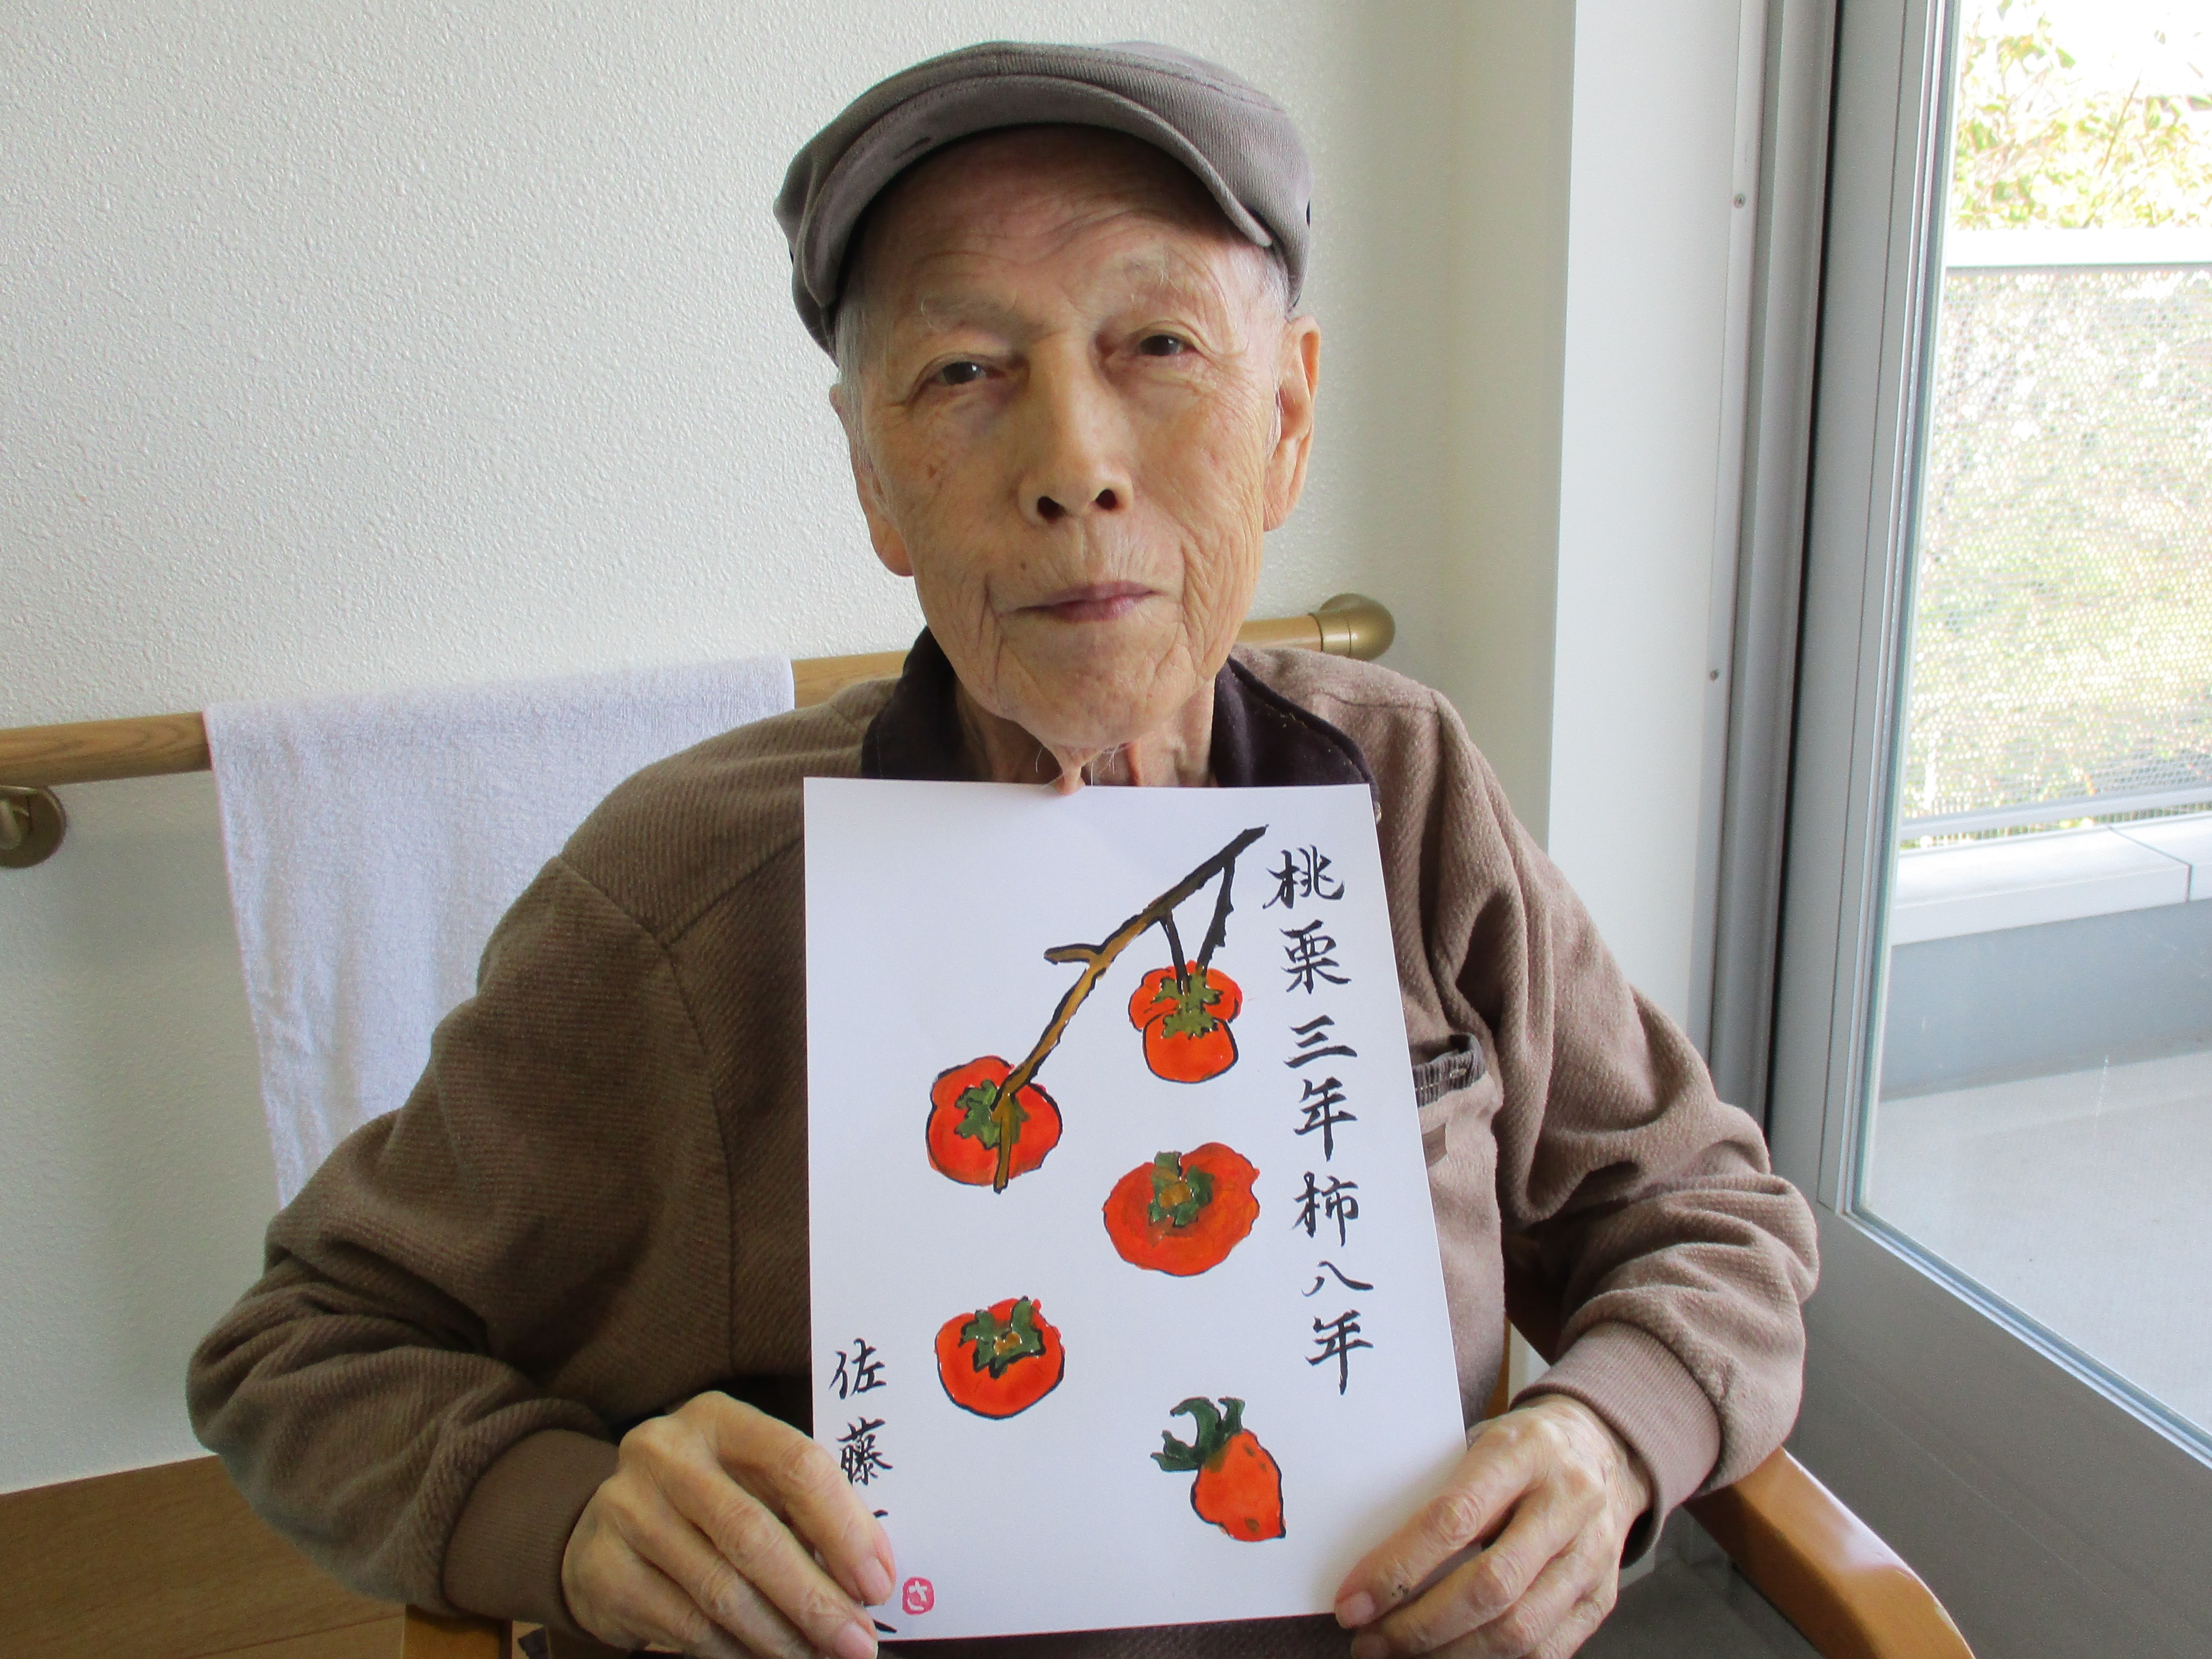 桃栗三年柿八年
佐藤
さ